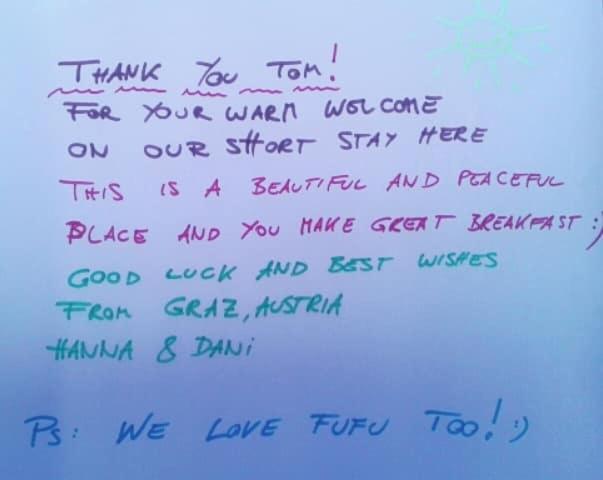 THANK YOU TOM!
FOR YOUR WARM WELCOME
ON OUR SHORT STAY HERE
THIS IS A BEAUTIFUL AND PEACEFUL
PLACE AND YOU MAKE GREAT BREAKFAST :)
GOOD LUCK AND BEST WISHES
FROM GRAZ, AUSTRIA
HANNA & DANi
Ps: WE LOVE FUFU TOO! :)